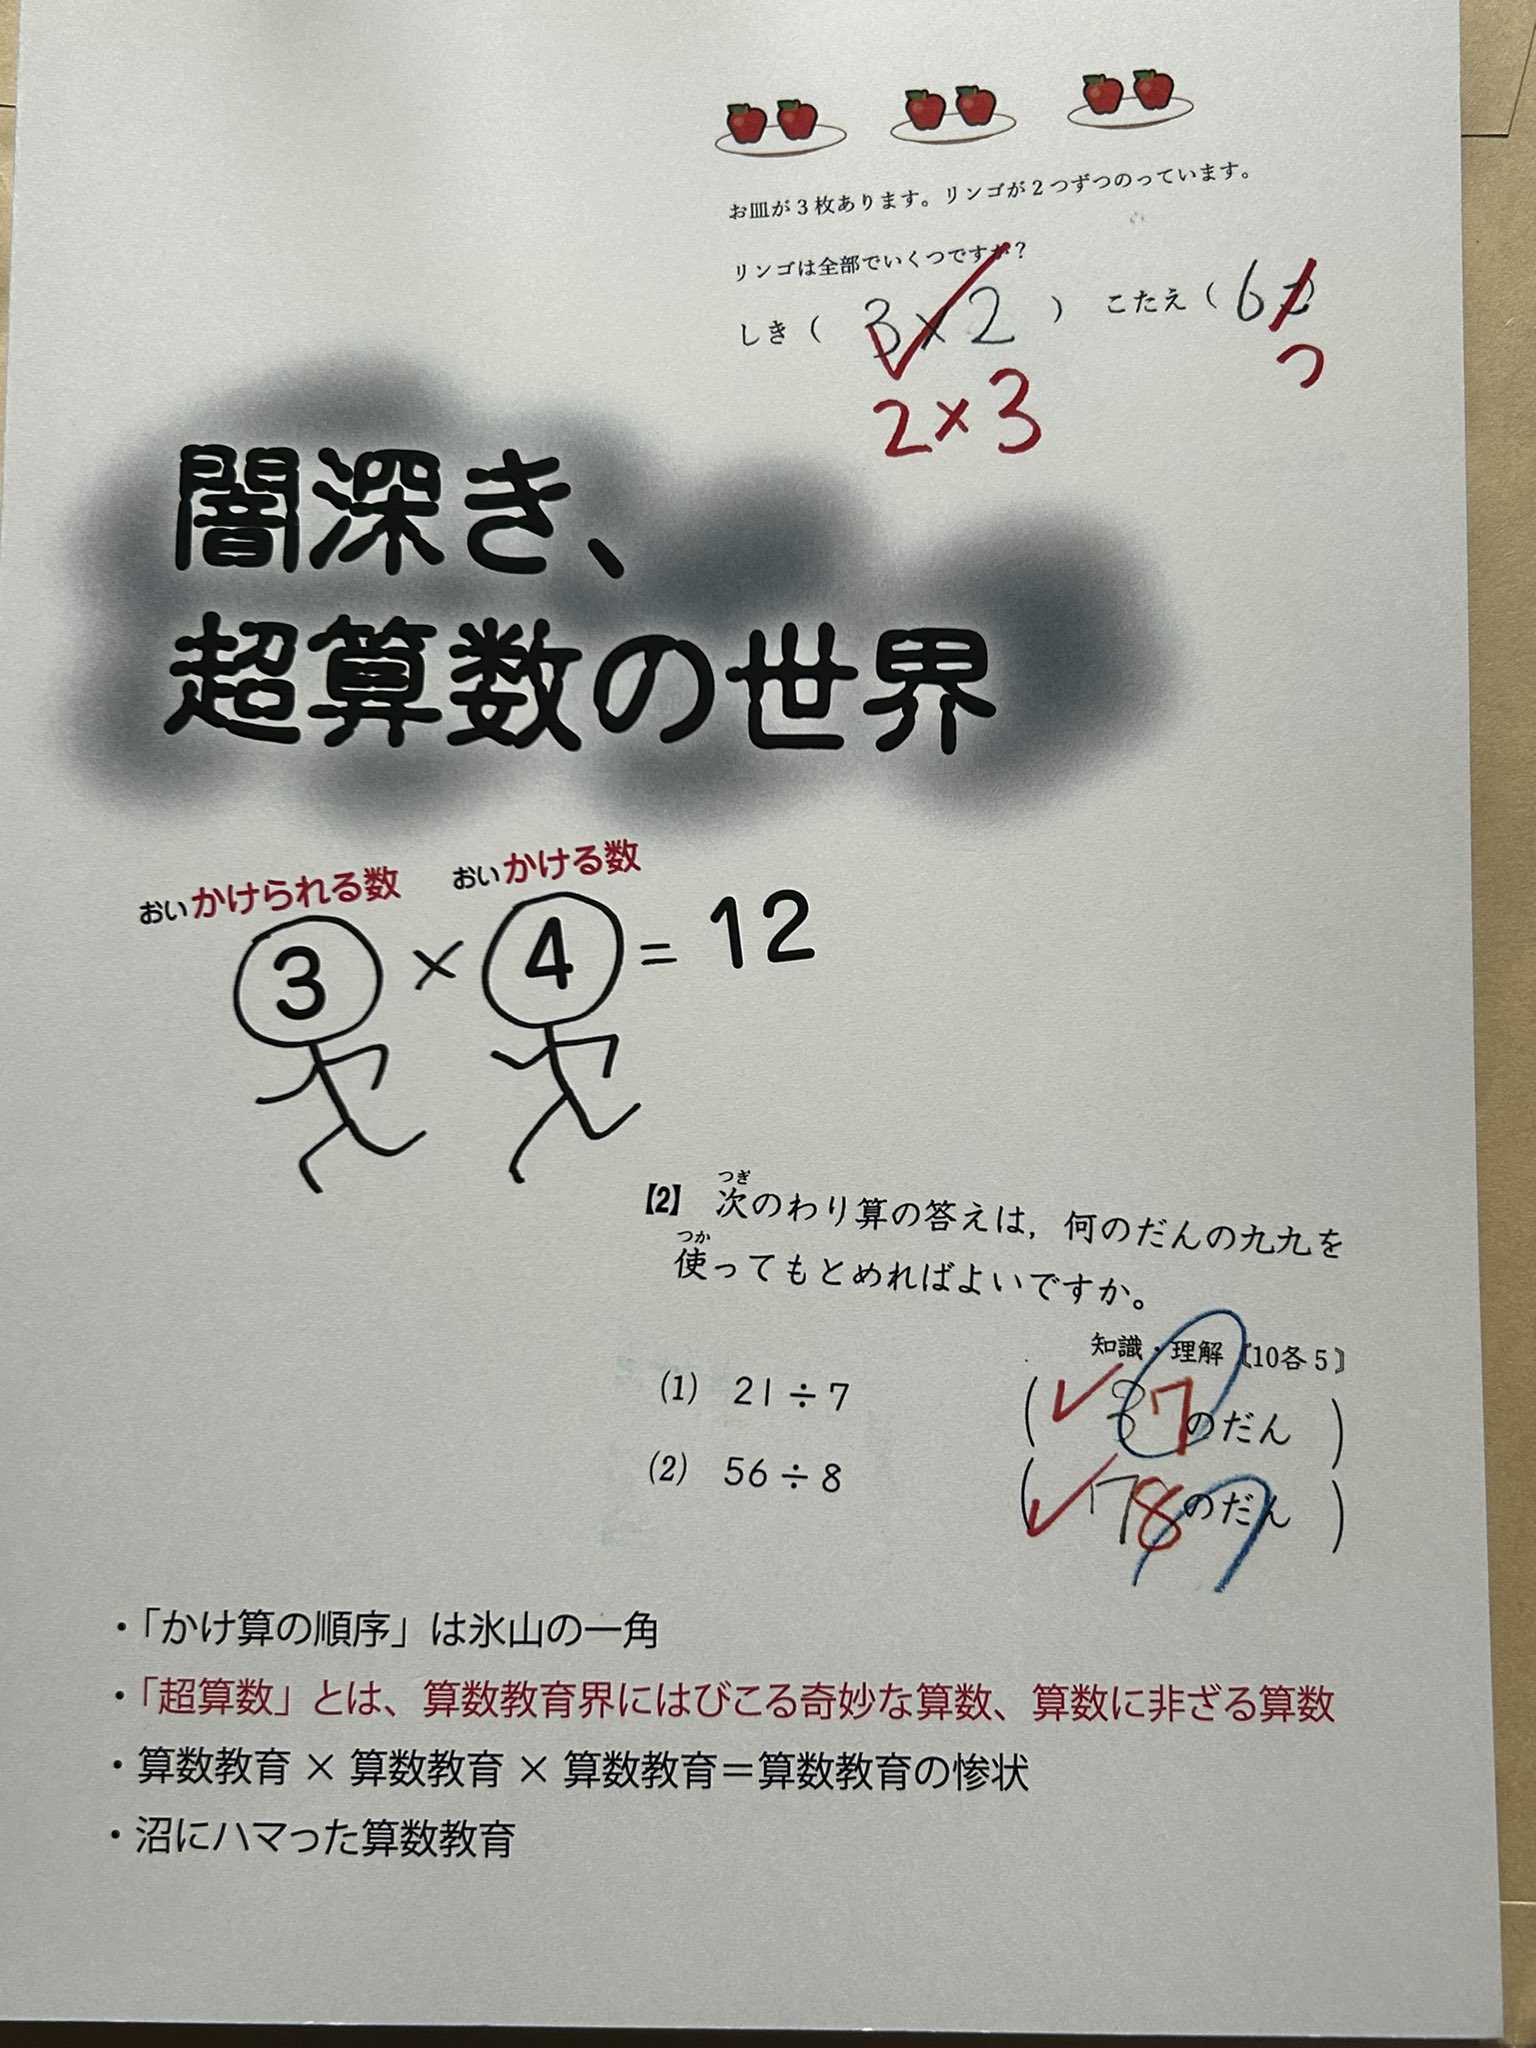 お皿が3枚あります。リンゴが2つずつのっています。
リンゴは全部でいくつですか？
しき（ 3×2 ） こたえ（ 6
2×3
つ
闇深き、
超算数の世界
おいかけられる数 おいかける数
3 × 4 = 12
【2】 次のわり算の答えは，何のだんの九九を
つぎ
使ってもとめればよいですか。
つか
知識・理解〔10各5〕
(1) 21÷7 ( 3 7のだん )
(2) 56÷8 ( 7 8のだん )
・「かけ算の順序」は氷山の一角
・「超算数」とは、算数教育界にはびこる奇妙な算数、算数に非ざる算数
・算数教育 × 算数教育 × 算数教育＝算数教育の惨状
・沼にハマった算数教育